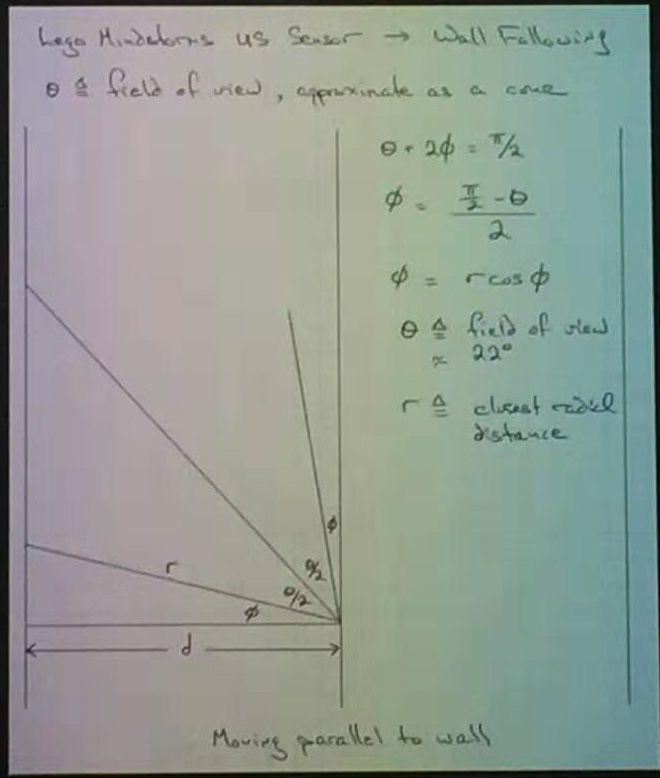 Lego Mindstorms US Sensor → Wall Following
θ ≜ field of view, approximate as a cone
θ + 2φ = π/2
φ = (π/2 - θ)/2
φ = r cos φ
θ ≜ field of view
≈ 22°
r ≜ closest radial
distance
φ
θ/2
r
θ/2
φ
d
Moving parallel to wall